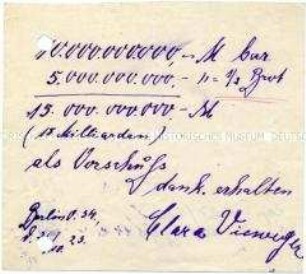 10.000.000.000,- M bar
5.000.000.000,- " = 1/2 Brot
15.000.000.000,- M
(15 Milliarden)
als Vorschuß
dank. erhalten
Berlin O. 34,
Clara Vieweger
10. 23.